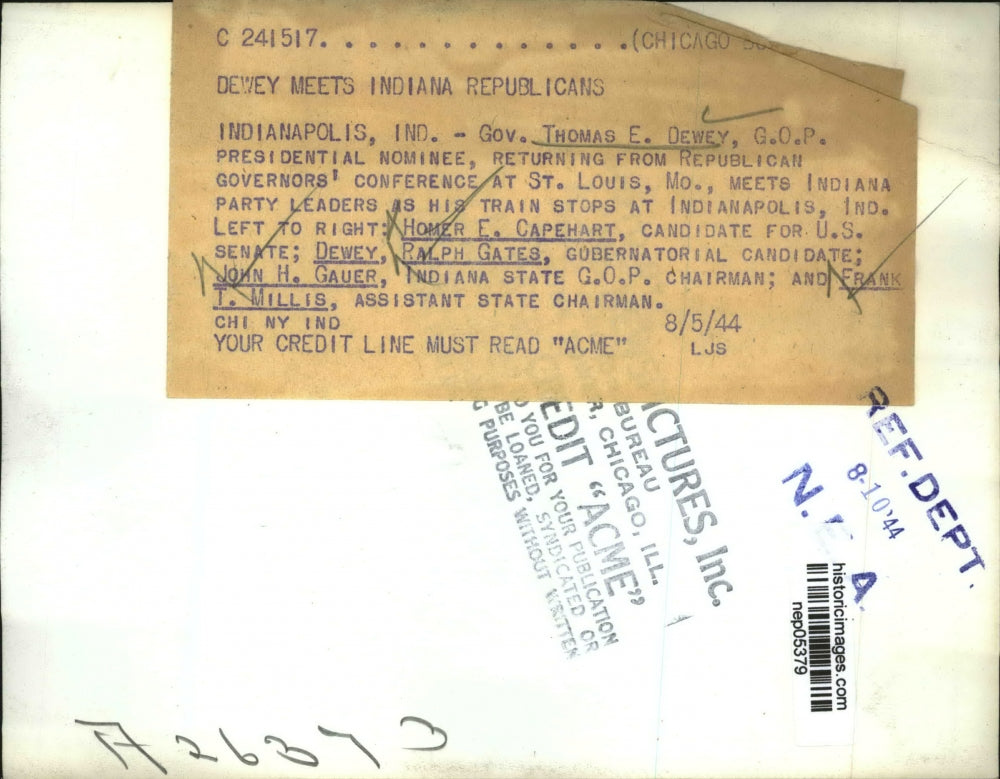 C 241517. . . . . . . . . . . . . .(CHICAGO
DEWEY MEETS INDIANA REPUBLICANS
INDIANAPOLIS, IND. - GOV. THOMAS E. DEWEY, G.O.P.
PRESIDENTIAL NOMINEE, RETURNING FROM REPUBLICAN
GOVERNORS' CONFERENCE AT ST. LOUIS, MO., MEETS INDIANA
PARTY LEADERS AS HIS TRAIN STOPS AT INDIANAPOLIS, IND.
LEFT TO RIGHT: HOMER E. CAPEHART, CANDIDATE FOR U.S.
SENATE; DEWEY, RALPH GATES, GUBERNATORIAL CANDIDATE;
JOHN H. GAUER, INDIANA STATE G.O.P. CHAIRMAN; AND FRANK
T. MILLIS, ASSISTANT STATE CHAIRMAN.
CHI NY IND 8/5/44
YOUR CREDIT LINE MUST READ "ACME" LJS
ICTURES, Inc.
BUREAU
R, CHICAGO, ILL.
EDIT "ACME"
YOU FOR YOUR PUBLICATION
BE LOANED, SYNDICATED OR
G PURPOSES WITHOUT WRITTEN
REF. DEPT.
8-10'44
N. E. A.
historicimages.com
nep05379
A 2637